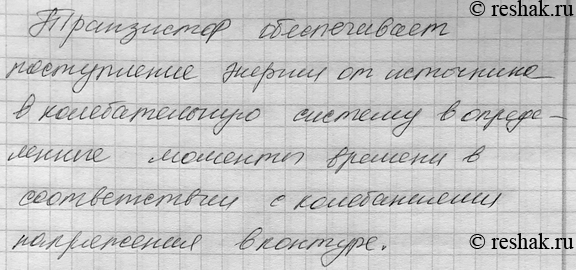 © reshak.ru
Транзистор обеспечивает
поступление энергии от источника
в колебательную систему в опреде-
ленные моменты времени в
соответствии с колебаниями
напряжения в контуре.
© reshak.ru